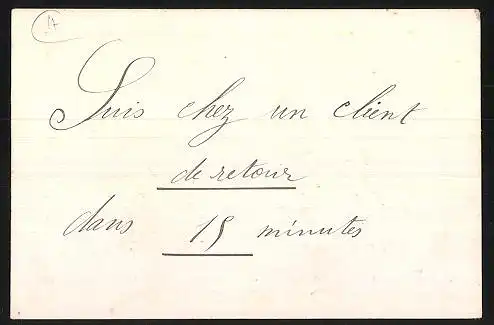 A
Suis chez un client
de retour
dans 15 minutes